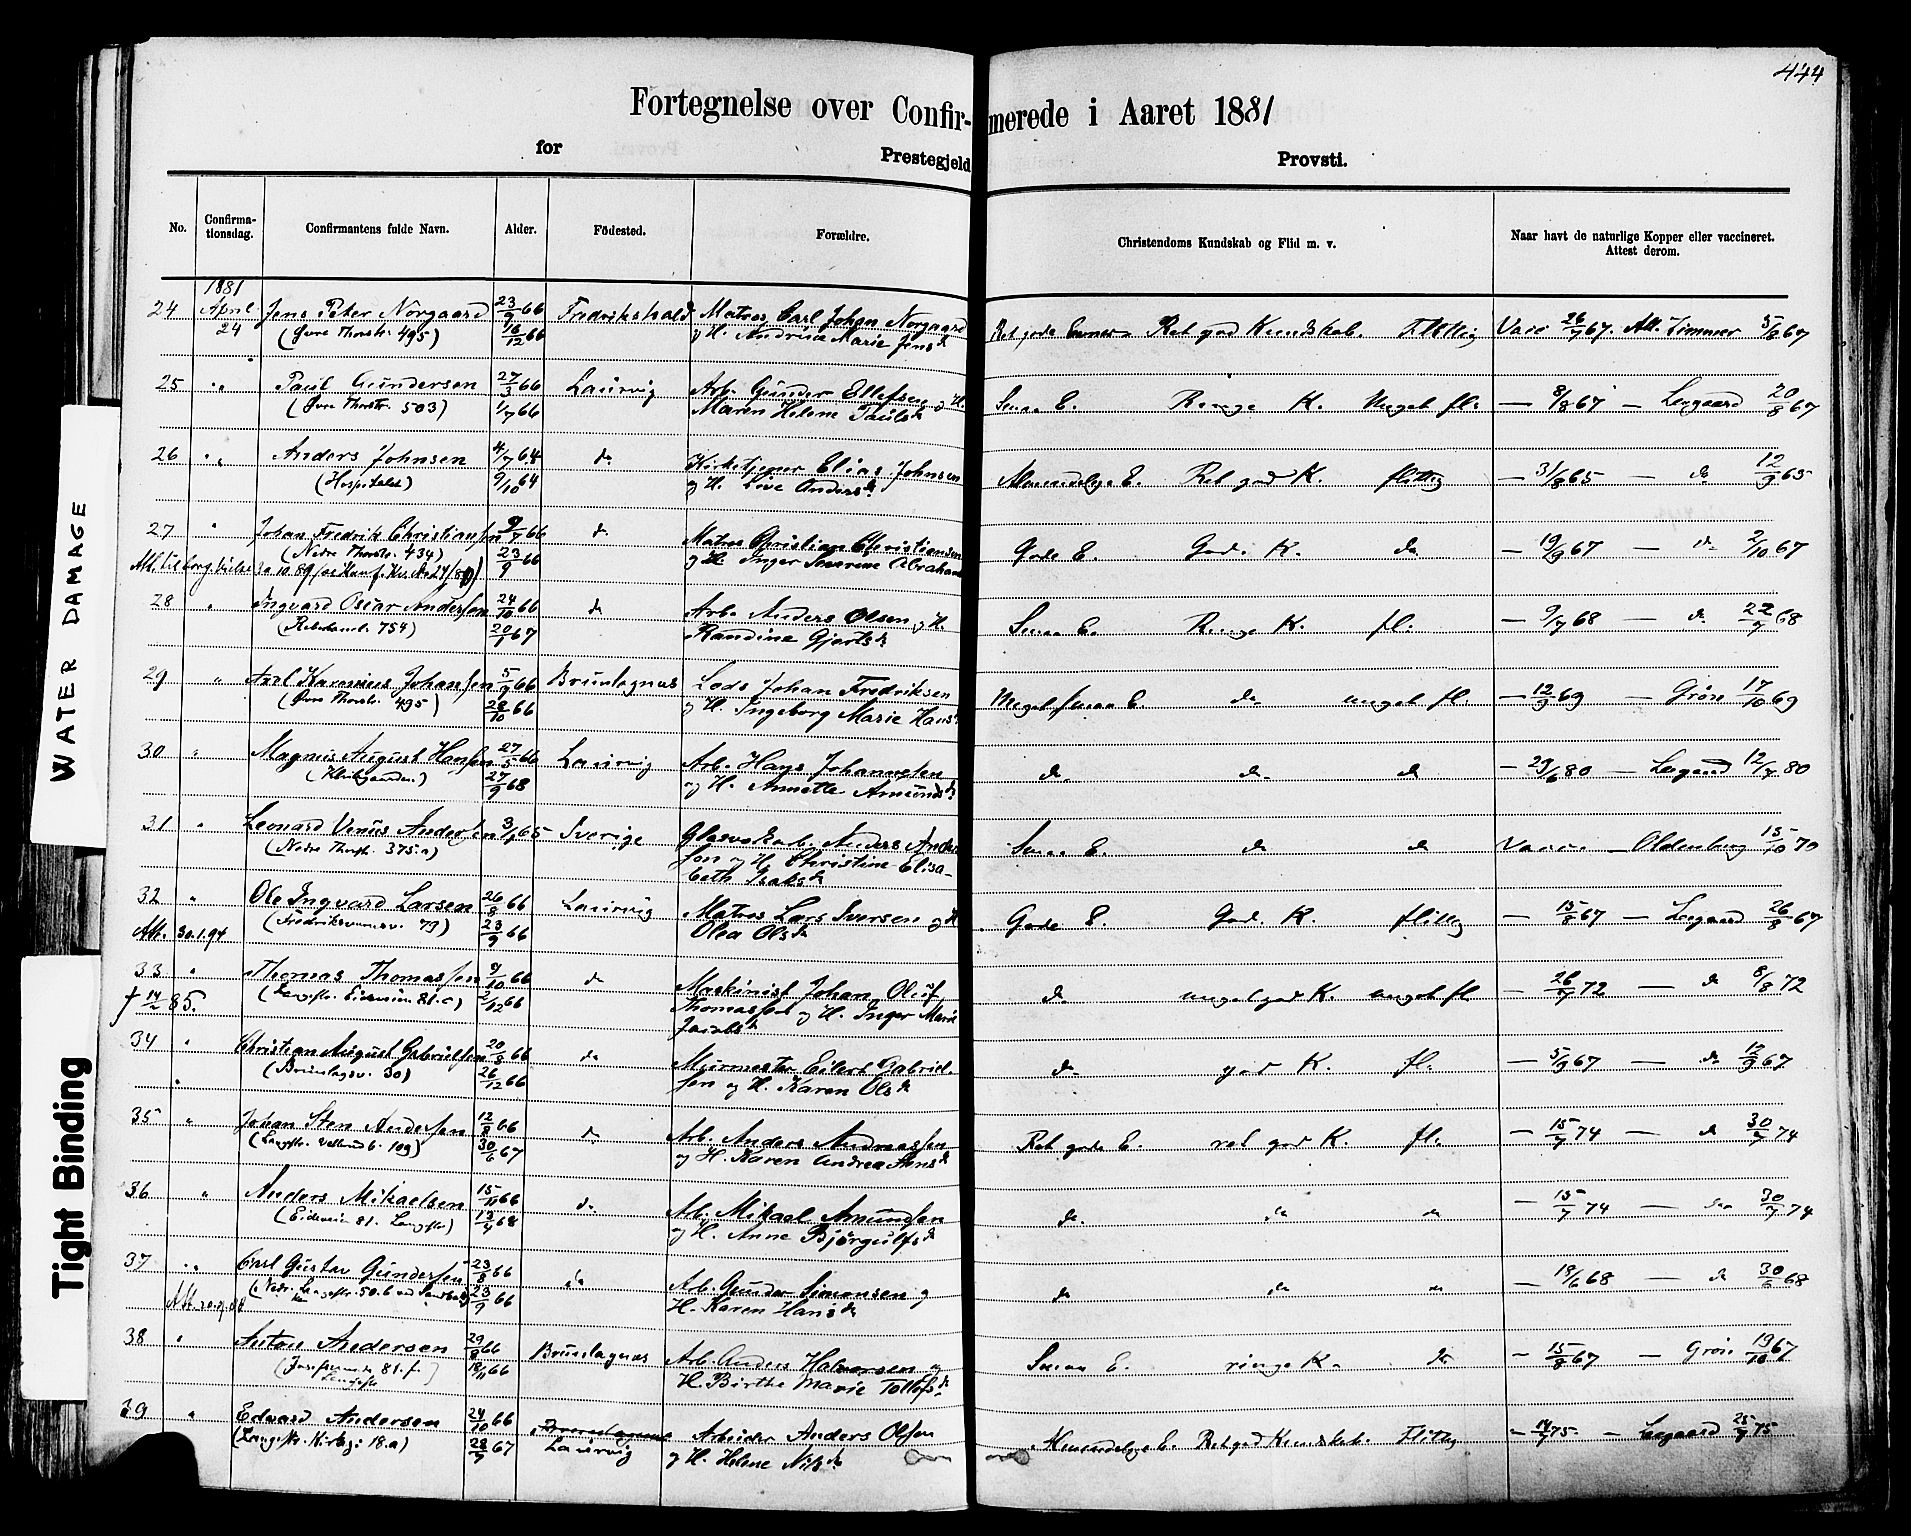 444
Fortegnelse over Confir- merede i Aaret 1881
for Prestegjeld Provsti.
No. Confirma-tionsdag. Confirmantens fulde Navn. Alder. Födested. Forældre. Christendoms Kundskab og Flid m. v. Naar havt de naturlige Kopper eller vaccineret. Attest derom.
1881
24 April 24 Jens Peter Norgaard 23/9 66 Fredrikshald Matros Carl Johan Norgaard Ret gode Evner Ret god Kundskab. Flittig Vacc 26/7 67. Att. Zimmer 5/8 67
(Øvre Thorstr. 495) 16/12 66 og H. Andrine Marie Jensd
25 " Paul Gundersen 27/3 66 Laurvig Arb. Gunder Ellefsen og H. Smaa E. Ringe K. Meget fl. — 8/8 67 — Legaard 20/8 67
(Øvre Thorstr. 503) 1/7 66 Maren Helene Paulsd
26 " Anders Johnsen 4/7 64 do Kirketjener Elias Johnsen Almindelige E. Ret god K. flittig — 31/8 65 — do 12/9 65
(Hospitalet) 9/10 64 og H. Live Andersd
27 " Johan Fredrik Christiansen 9/7 66 do Matros Christian Christiansen Gode E. God K. do — 19/9 67 — do 2/10 67
(Nedre Thorstr. 434) 23/9 66 og H. Inger Severine Abraham
28 " Ingvard Oscar Andersen 24/10 66 do Arb. Anders Olsen og H. Smaa E. Ringe K. fl. — 9/7 68 — do 22/7 68
754) 20/1 67 Randine Gjertsd
29 " Axel Rasmus Johansen 5/9 66 Brunlagnæs Lods Johan Fredriksen Meget smaa E. do meget fl. — 12/9 69 — Grøn 17/10 69
(Øvre Thorstr. 495) 28/10 66 og H. Ingeborg Marie Hansd
30 " Magnus August Hansen 27/5 66 Laurvig Arb. Hans Johannesen do do do — 29/6 80 — Legaard 12/7 80
27/9 68 og H. Annette Amundsd
31 " Leonard Venus Andersen 3/1 65 Sverige Anders Ander Smaa E. do do Vacc — Oldenborg 15/10 79
(Nedre Thorstr. 375.a) sen og H. Christine Elisa-
beth Isaksd
32 " Ole Ingvard Larsen 26/8 66 Laurvig Matros Lars Iversen og H Gode E. God K. flittig — 15/8 67 — Legaard 26/8 67
Att. 30.1.94 (Fredriksvernsv. 79) 23/9 66 Olea Olsd
33 " Thomas Thomassen 9/10 66 do Maskinist Johan Oluf do meget god K. meget fl — 26/7 72 — do 8/8 72
† 14/2 85. (Langestr. 81.c) 2/12 66 Thomassen og H. Inger Marie
Jacobsd
34 " Christian August Gabrielsen 20/8 66 do Muurmester Eilert Gabriel- do god K. fl. — 5/9 67 — do 12/9 67
(Brunlagsv. 30) 26/12 66 sen og H. Karen Olsd
35 " Johan Sten Andersen 12/8 66 do Arb. Anders Andreassen Ret gode E. ret god K. fl. — 15/7 74 — do 30/7 74
(Langestr. 109) 30/6 67 og H. Karen Andrea
36 " Anders Mikaelsen 15/11 66 do Arb. Mikael Amundsen do do do — 15/7 74 — do 30/7 74
81. Langestr) 13/4 68 og H. Anne Bjørgulfsd
37 " Carl Gustav Gundersen 23/8 66 do Arb. Gunder Simonsen og do do do — 18/6 68 — do 30/6 68
23/9 66 H. Karen Hansd
38 " Anton Andersen 29/8 66 Brunlagnæs Arb. Anders Halvorsen og Smaa E. ringe K. do — 15/8 67 — Grøn 19/10 67
81.f) 18/11 66 H. Birthe Marie Tollefsd
Langestr
39 " Edvard Andersen 24/10 66 Arbeider Anders Olsen Almindelige E. Ret god Kundskab. Flittig — 14/7 75 — Legaard 25/7 75
(Langestr. Kirkeg. 18.a) 28/7 67 Laurvig og H. Helene Nilsd
WATER DAMAGE
Tight Binding